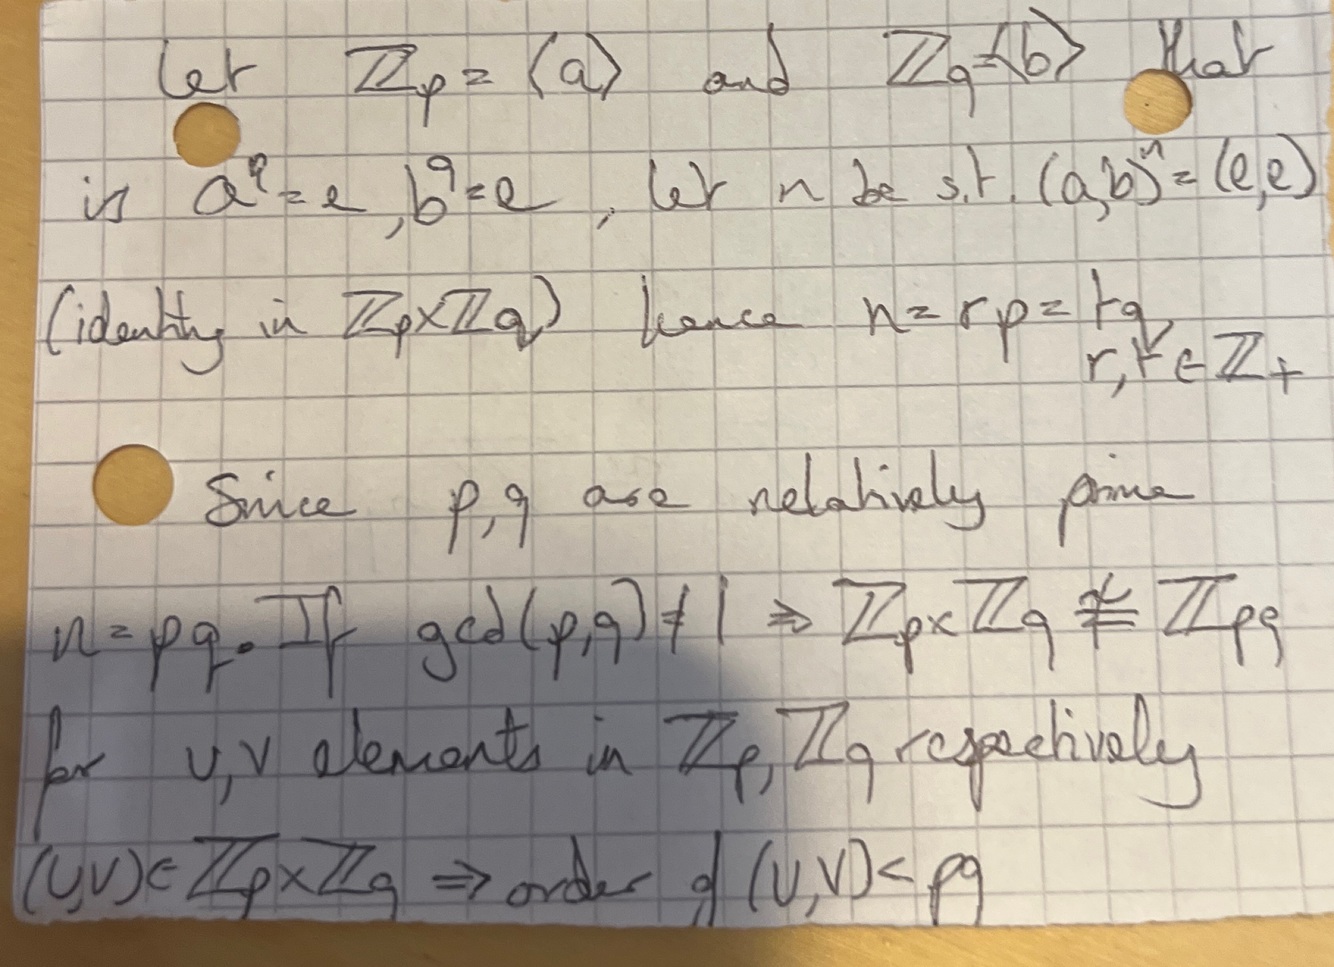 Let ℤp = ⟨a⟩ and ℤq=⟨b⟩ that
is a^q = e, b^q = e, let n be s.t. (a,b)^n = (e,e)
(identity in ℤp×ℤq) hence n = rp = tq
r,t ∈ ℤ+
Since p,q are relatively prime
n = pq. If gcd(p,q) ≠ 1 ⇒ ℤp × ℤq ≇ ℤpq
for u,v elements in ℤp, ℤq respectively
(u,v) ∈ ℤp×ℤq ⇒ order of (u,v) < pq